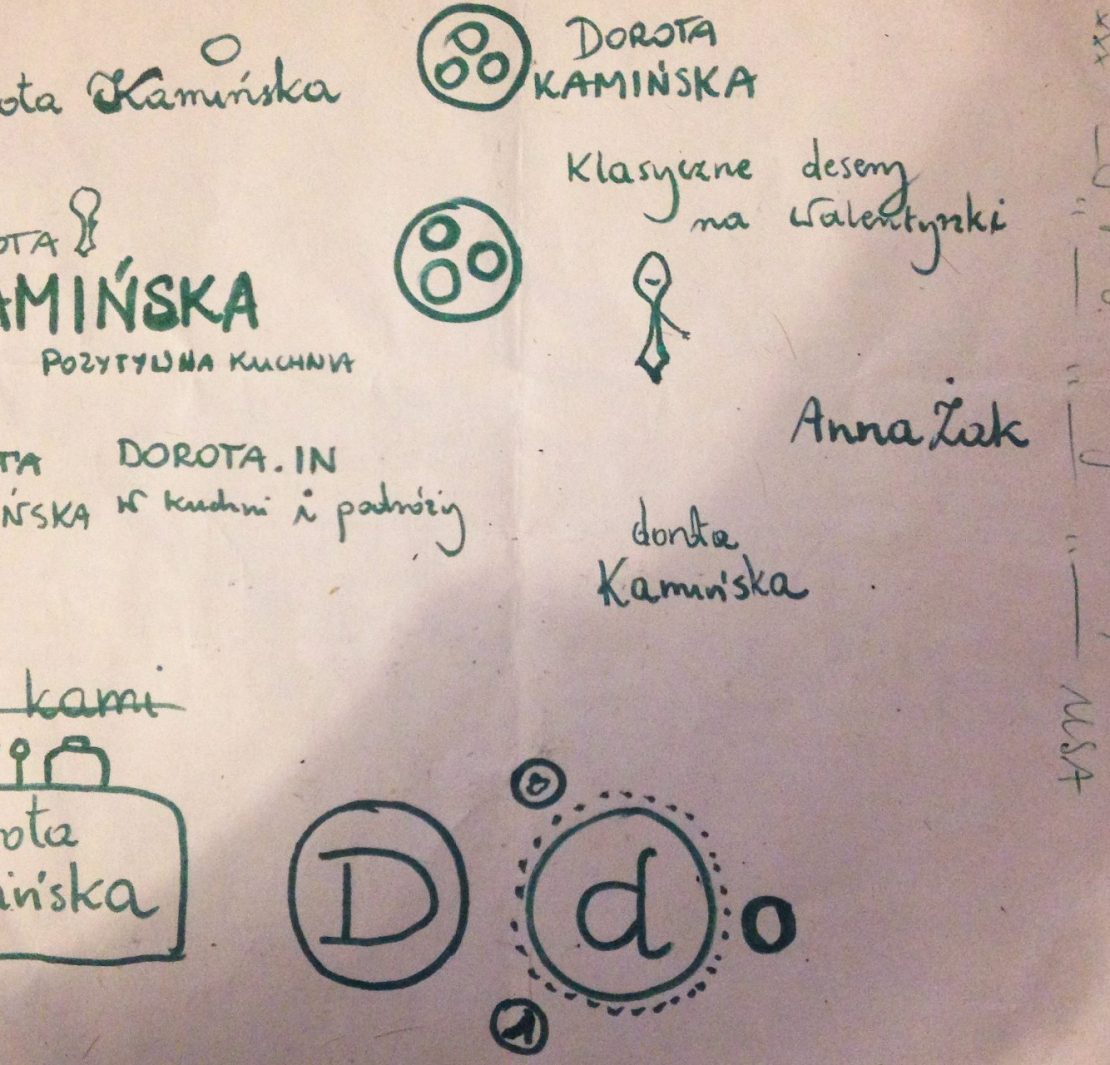 ota Kamińska
DOROTA
KAMIŃSKA
Klasyczne desery
na Walentynki
OTA
AMIŃSKA
POZYTYWNA KUCHNIA
Anna Żak
TA
ŃSKA
DOROTA.IN
w kuchni i podróży
dorota
Kamińska
kami
ota
ińska
D
d
o